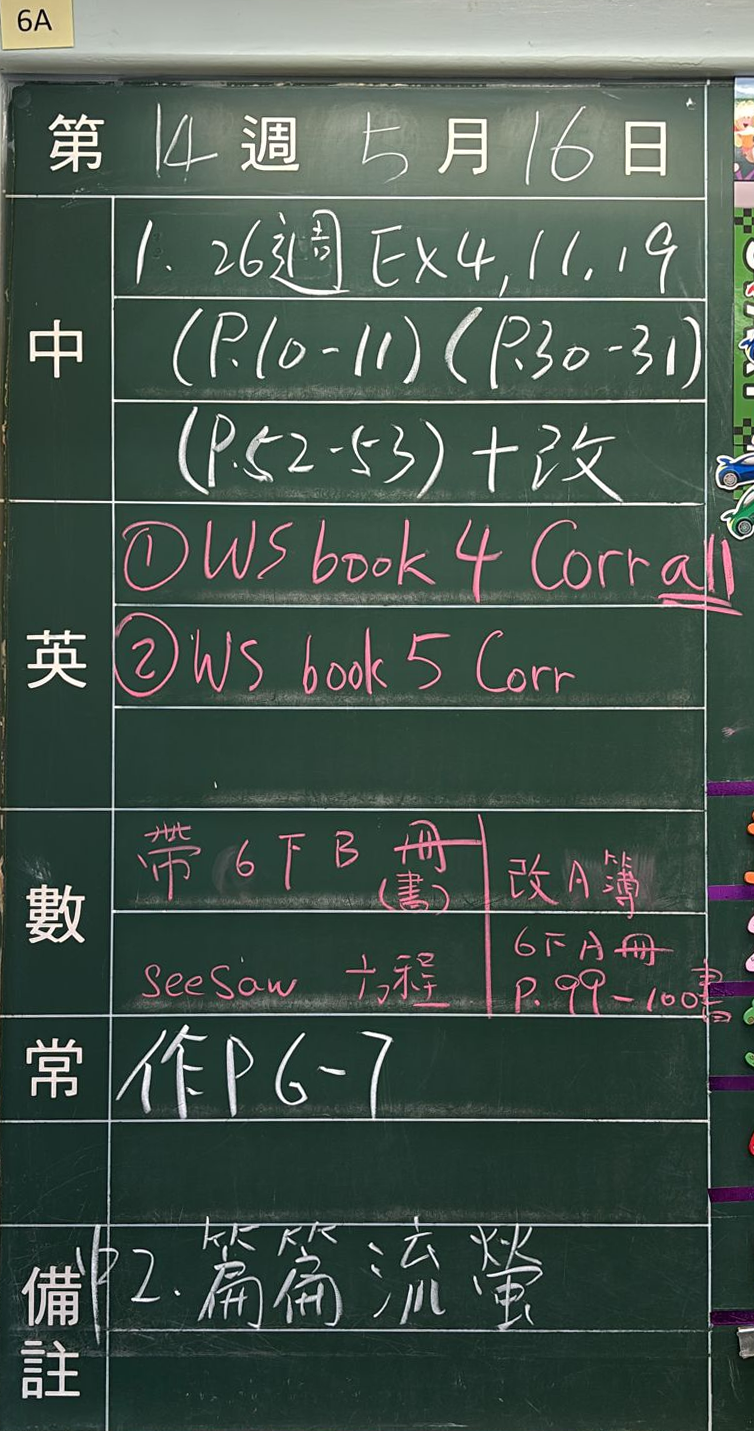 6A
第 14 週 5 月 16 日
中
1. 26週 Ex4, 11, 19
(P.10-11) (P.30-31)
(P.52-53) + 改
英
①WS book 4 Corr all
②WS book 5 Corr
數
帶 6下B冊
(書)
seesaw 方程
改A簿
6下A冊
P.99-100書
常
作P6-7
備註
中2. 篇篇流螢